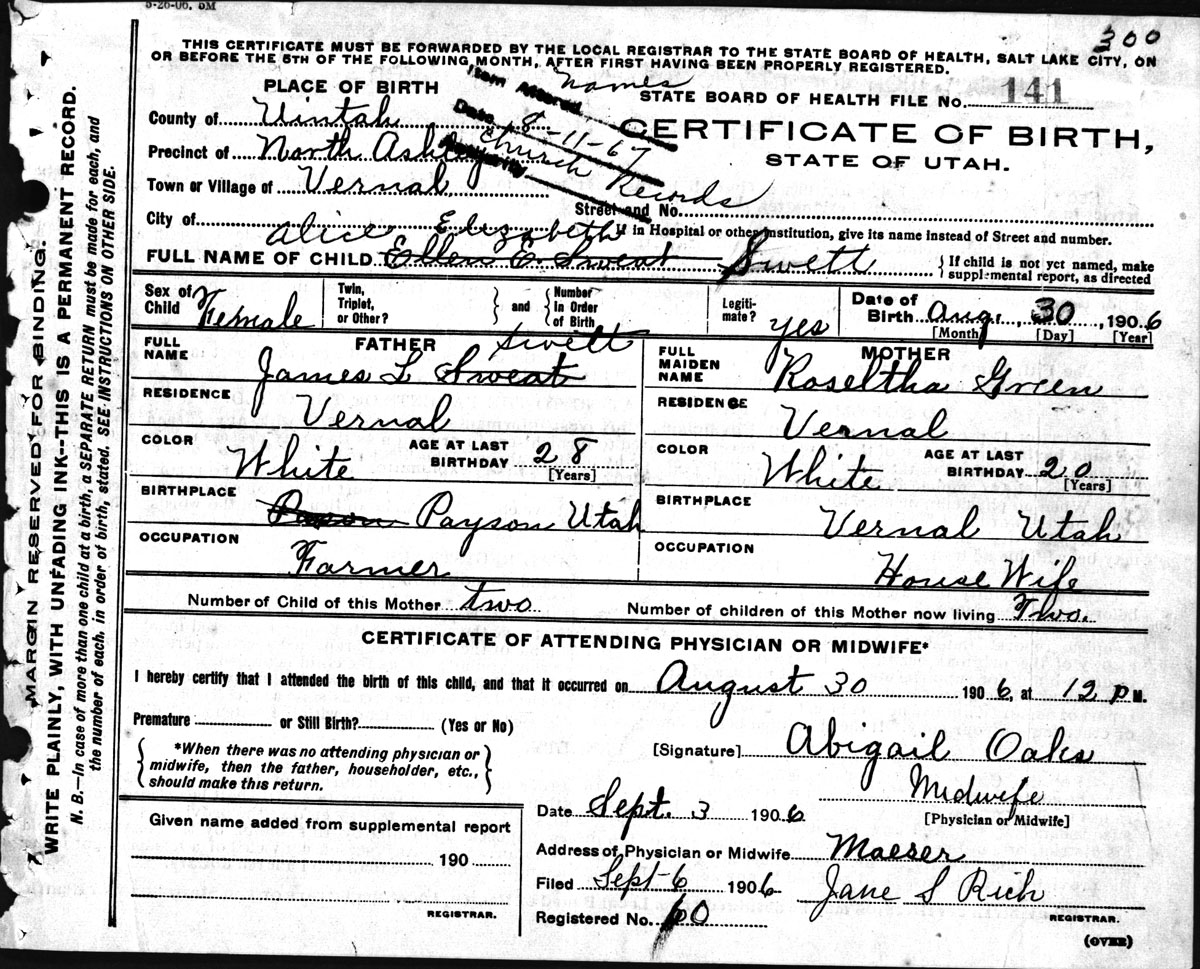 5-26-06. 5M
300
THIS CERTIFICATE MUST BE FORWARDED BY THE LOCAL REGISTRAR TO THE STATE BOARD OF HEALTH, SALT LAKE CITY, ON
OR BEFORE THE 5TH OF THE FOLLOWING MONTH, AFTER FIRST HAVING BEEN PROPERLY REGISTERED.
Item Altered Names
Date 8-11-67
Church Records
PLACE OF BIRTH
STATE BOARD OF HEALTH FILE No. 141
County of Uintah
CERTIFICATE OF BIRTH,
Precinct of North Ashley
STATE OF UTAH.
Town or Village of Vernal
Street and No.
City of
If in Hospital or other institution, give its name instead of Street and number.
Alice Elizabeth
FULL NAME OF CHILD Ellen E. Sweat Swett
{If child is not yet named, make supplemental report, as directed
Sex of Child Female
Twin, Triplet, or Other? } and { Number in Order of Birth
Legitimate? yes
Date of Birth Aug, 30, 1906
[Month] [Day] [Year]
FATHER
MOTHER
Swett
FULL NAME James L Sweat
FULL MAIDEN NAME Roseltha Green
RESIDENCE Vernal
RESIDENCE Vernal
COLOR White AGE AT LAST BIRTHDAY 28 [Years]
COLOR White AGE AT LAST BIRTHDAY 20 [Years]
BIRTHPLACE Payson Utah
BIRTHPLACE Vernal Utah
OCCUPATION Farmer
OCCUPATION House Wife
Number of Child of this Mother two
Number of children of this Mother now living Two.
CERTIFICATE OF ATTENDING PHYSICIAN OR MIDWIFE*
I hereby certify that I attended the birth of this child, and that it occurred on August 30 1906, at 12 P M.
Premature or Still Birth? (Yes or No)
{*When there was no attending physician or
midwife, then the father, householder, etc.,
should make this return.}
[Signature] Abigail Oaks
Midwife
[Physician or Midwife]
Date Sept. 3 1906
Given name added from supplemental report
190
REGISTRAR.
Address of Physician or Midwife Maeser
Filed Sept 6 1906 Jane S Rich
REGISTRAR.
Registered No. 60
(OVER)
MARGIN RESERVED FOR BINDING.
WRITE PLAINLY, WITH UNFADING INK--THIS IS A PERMANENT RECORD.
N. B.—In case of more than one child at a birth, a SEPARATE RETURN must be made for each, and
the number of each, in order of birth, stated. SEE INSTRUCTIONS ON OTHER SIDE.